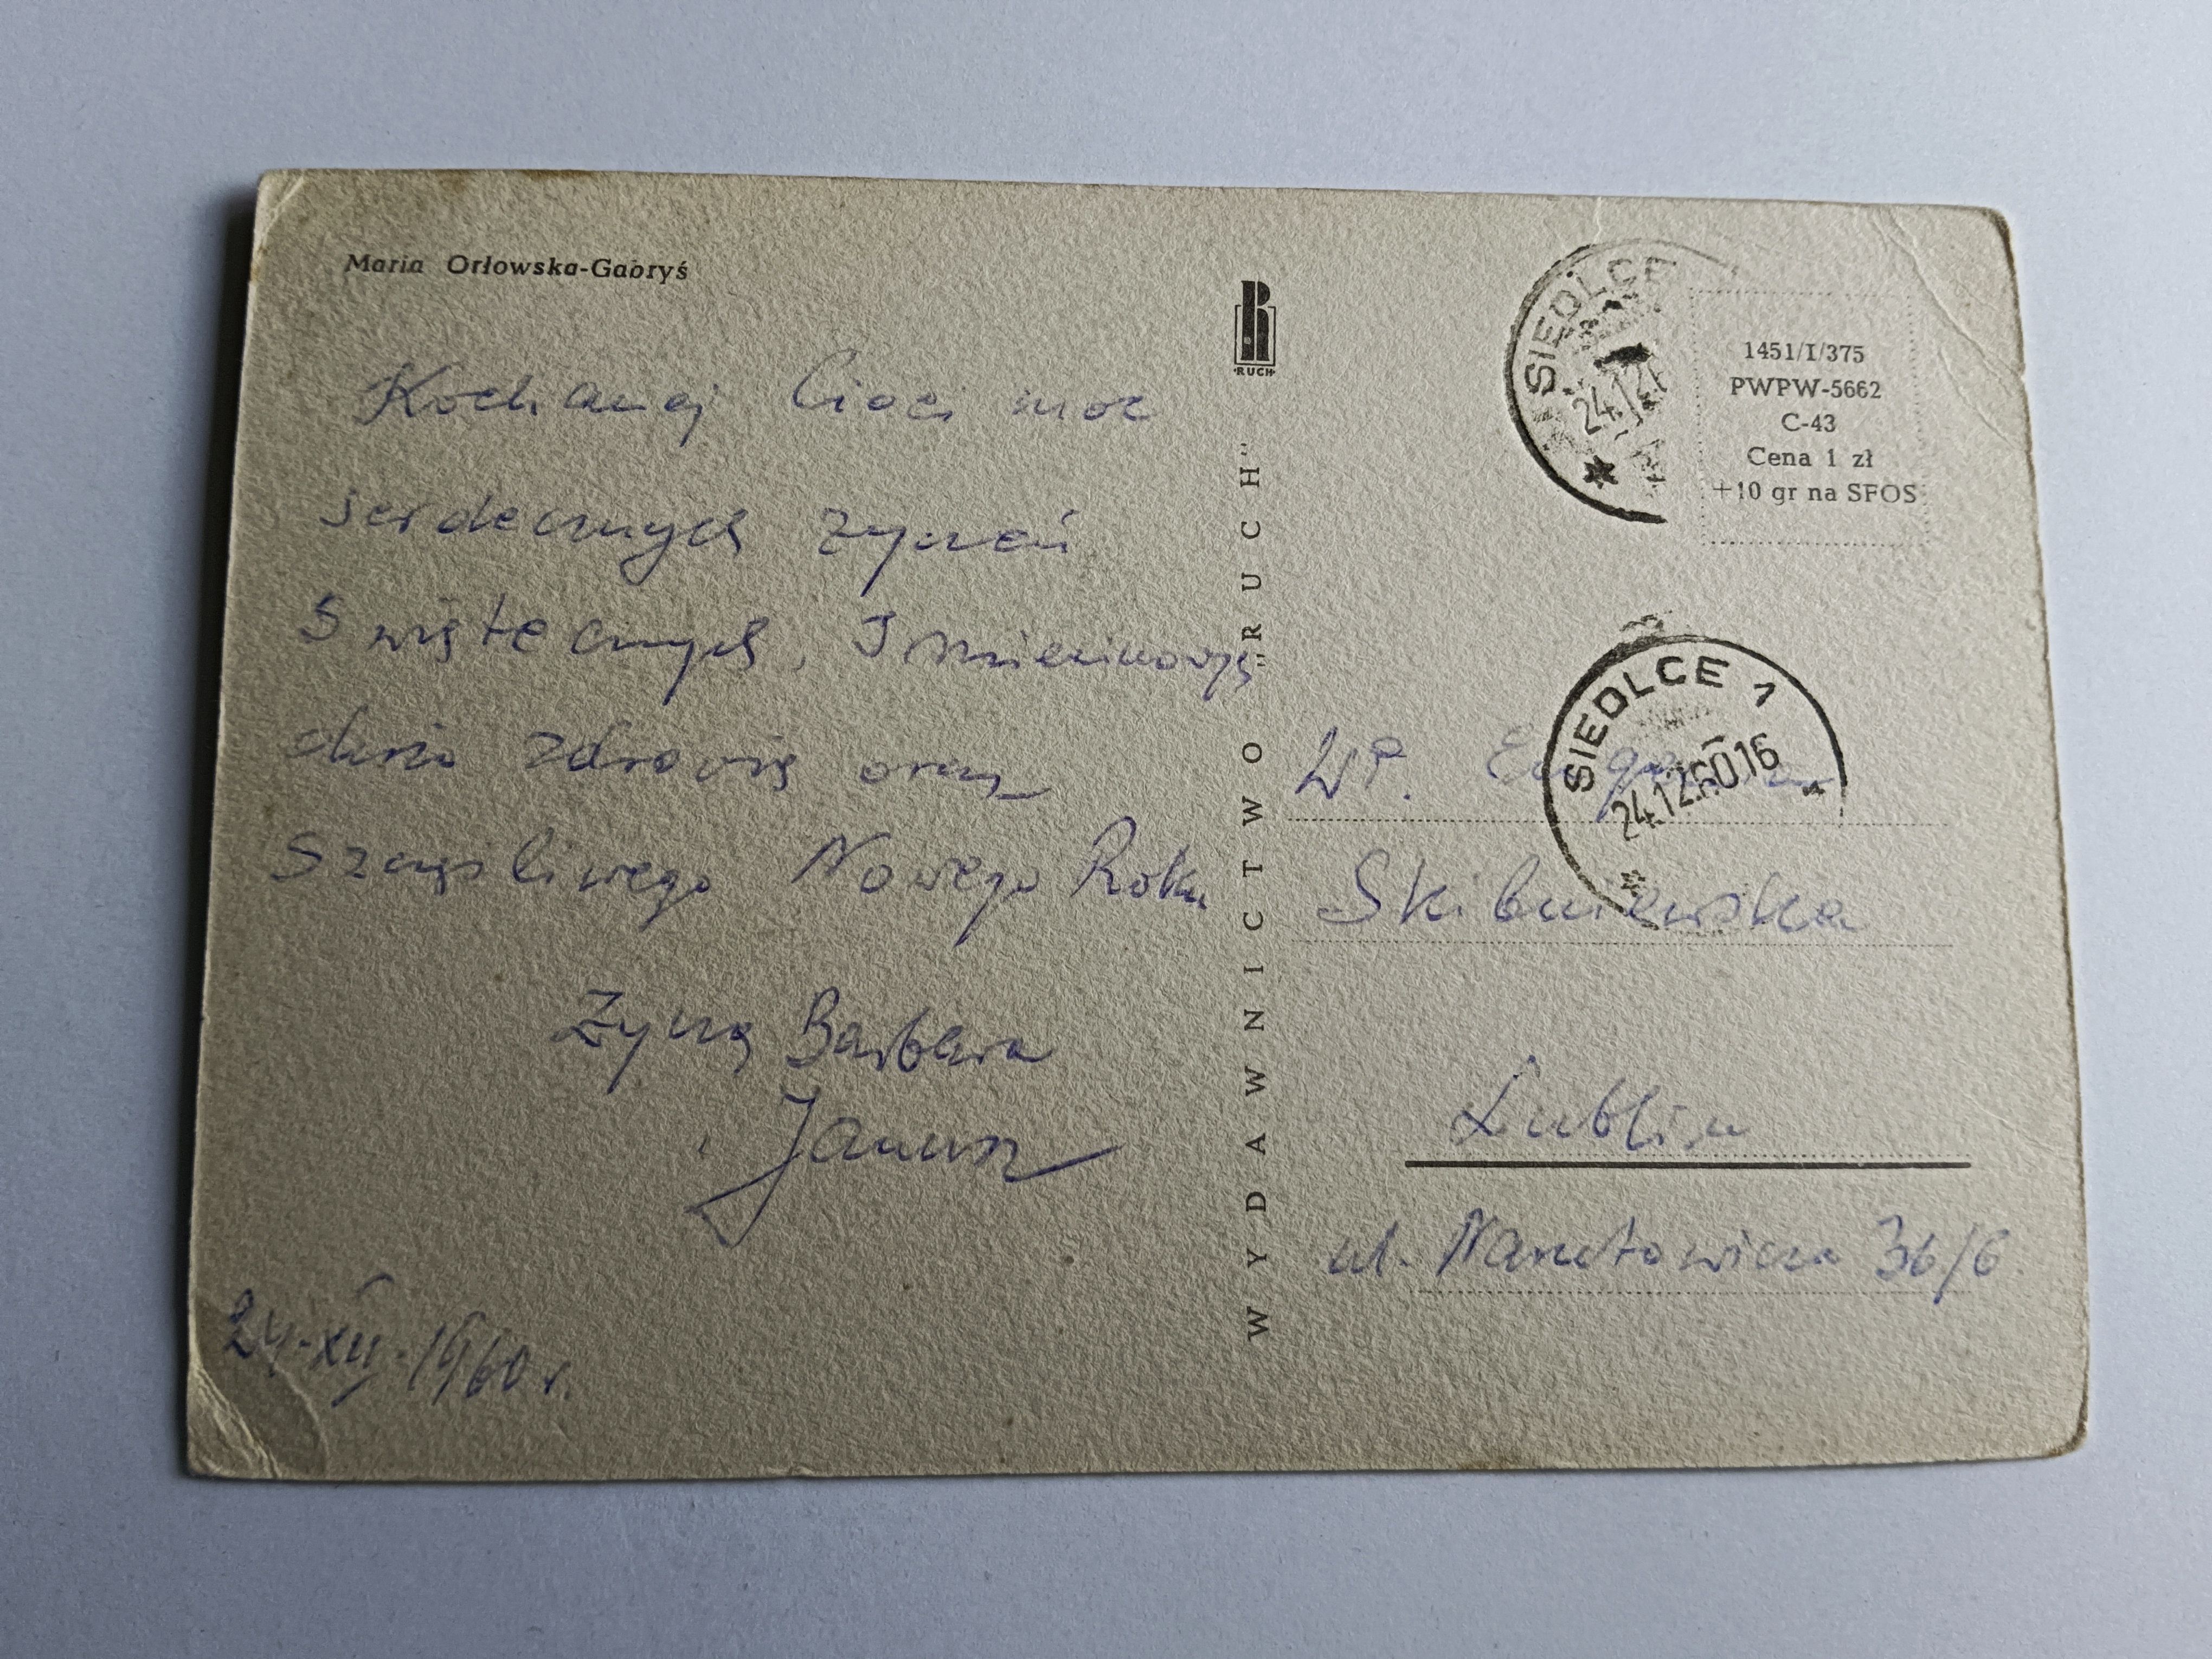 Maria Orłowska-Gabryś
Kochanej Cioci moc
serdecznych życzeń
Świątecznych, Imieninowych
dużo zdrowia oraz
Szczęśliwego Nowego Roku
Życzą Barbara
Janusz
24-XII-1960 r.
RUCH
WYDAWNICTWO „RUCH"
SIEDLCE
24.12
1451/I/375
PWPW-5662
C-43
Cena 1 zł
+10 gr na SFOS
SIEDLCE 1
24.12.60.16
WP.
Skibniewska
Lublin
ul. Narutowicza 36/6